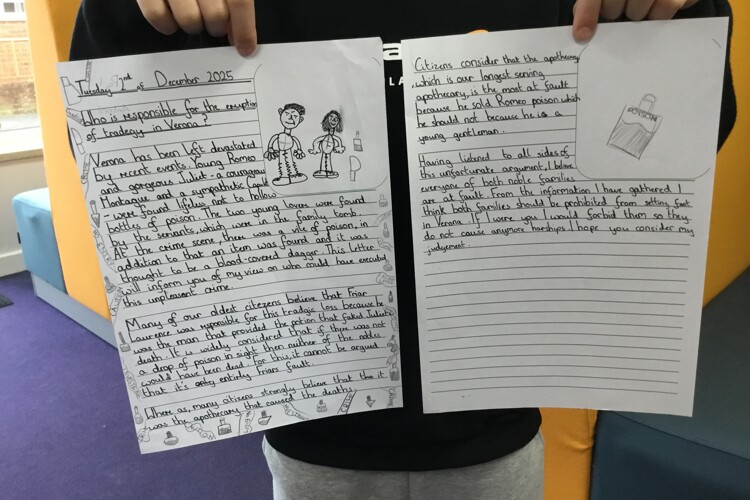 Tuesday 2nd of December 2025
Who is responsible for the eruption
of tradegy in Verona?
Verona has been left devastated
by recent events. Young Romeo
and gorgeous Juliet - a courageous
Montague and a sympathetic Capulet
- were found lifeless next to hollow
bottles of poison. The two young lovers were found
by the servants, which were in the family tomb.
At the crime scene, there was a vile of poison, in
addition to that an item was found and it was
thought to be a blood-covered dagger. This letter
will inform you of my view on who could have executed
this unpleasent crime.
Many of our oldest citizens believe that Friar
Laurence was responsible for this tradgic loss because he
was the man that provided the potion that faked Juliets
death. It is widely considered that if there was not
a drop of poison in sight then neither of the nobles
would have been dead. For this, it cannot be argued
that it's entirely Friars fault.
Where as, many citizens strongly believe that the it
was the apothecary that caused the deaths.
Citizens consider that the apothecary
, which is our longest serving
apothecary, is the most at fault
because he sold Romeo poison which
he should not because he is a
young gentleman.
Having listened to all sides of
this unfortunate argument, I believe
everyone of both noble families
are at fault. From the information I have gathered I
think both families should be prohibited from setting foot
in Verona. If I were you I would forbid them so they
do not cause anymore harships. I hope you consider my
judgement.
POISON